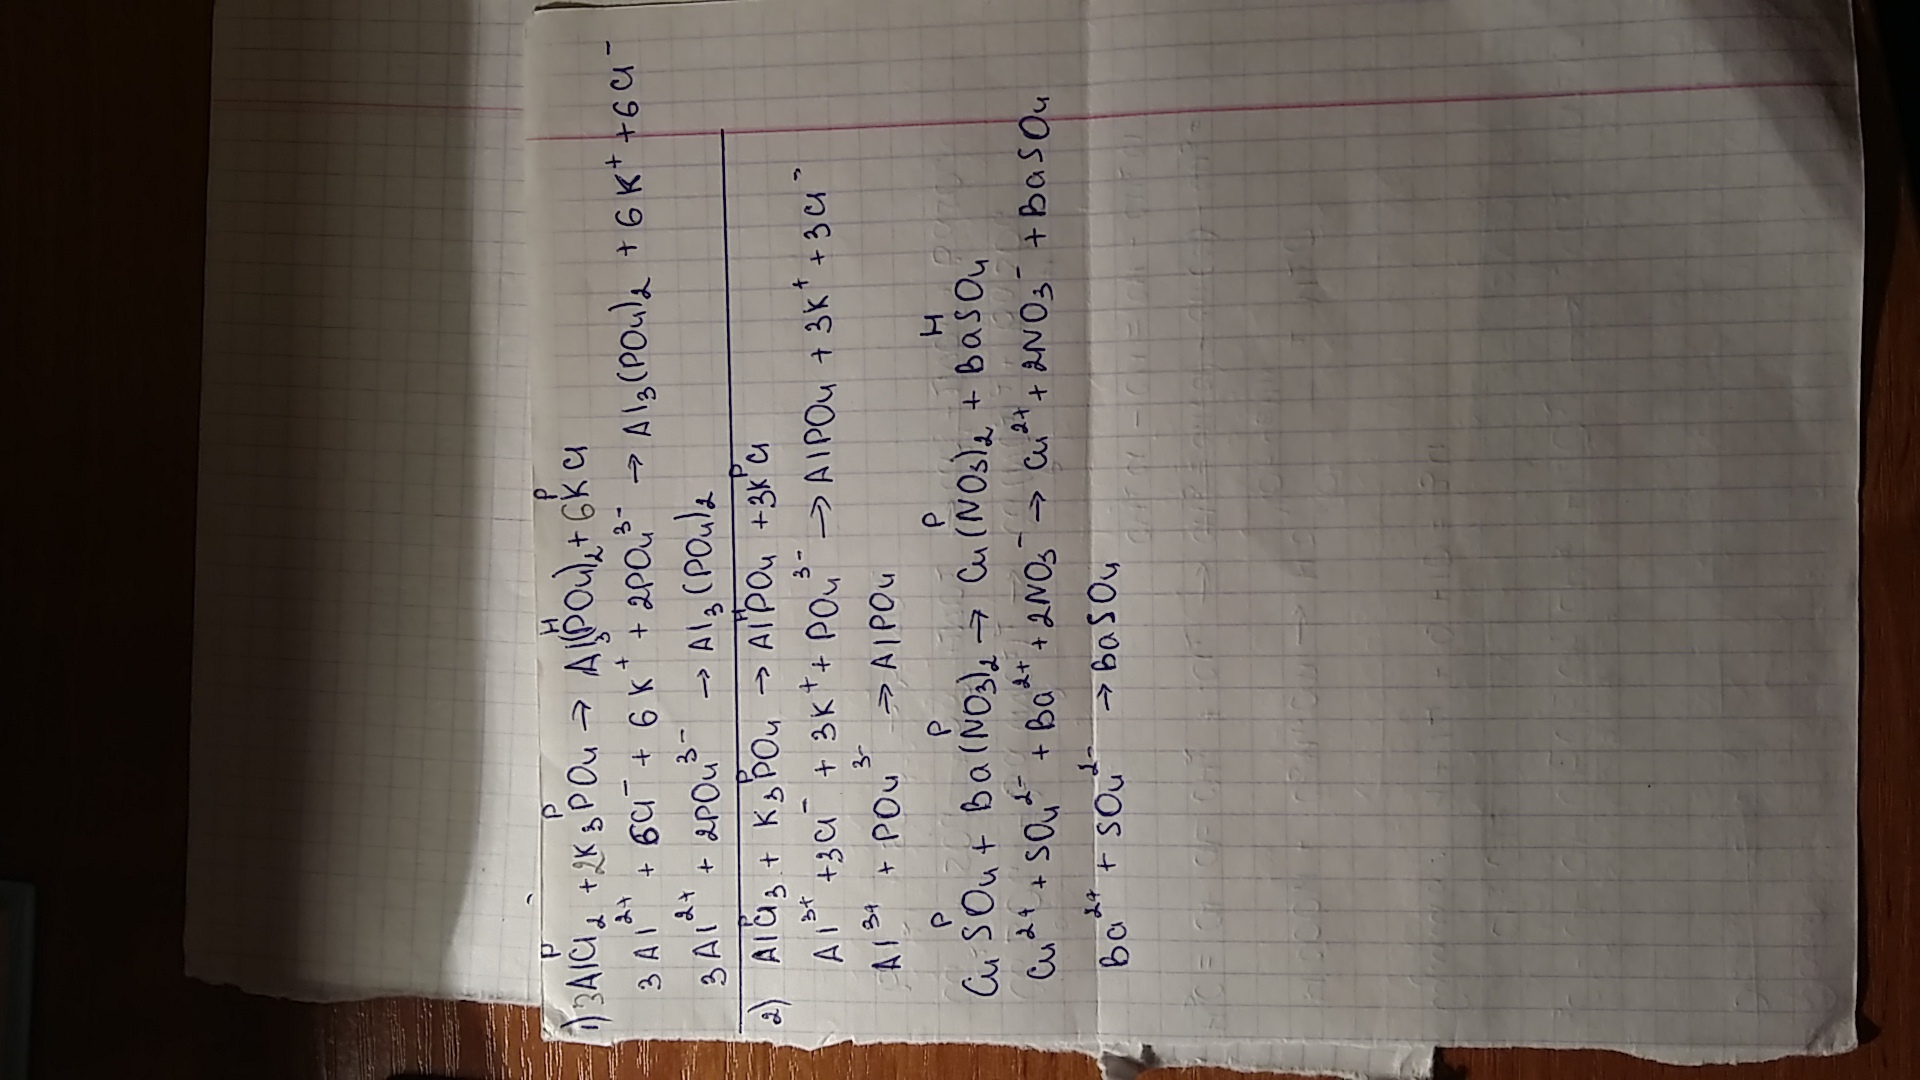 P P H P
1) 3AlCl2 + 2K3PO4 → Al3(PO4)2 + 6KCl
3Al²⁺ + 6Cl⁻ + 6K⁺ + 2PO4³⁻ → Al3(PO4)2 + 6K⁺ + 6Cl⁻
3Al²⁺ + 2PO4³⁻ → Al3(PO4)2
P P H P
2) AlCl3 + K3PO4 → AlPO4 + 3KCl
Al³⁺ + 3Cl⁻ + 3K⁺ + PO4³⁻ → AlPO4 + 3K⁺ + 3Cl⁻
Al³⁺ + PO4³⁻ → AlPO4
P P P H
CuSO4 + Ba(NO3)2 → Cu(NO3)2 + BaSO4
Cu²⁺ + SO4²⁻ + Ba²⁺ + 2NO3⁻ → Cu²⁺ + 2NO3⁻ + BaSO4
Ba²⁺ + SO4²⁻ → BaSO4